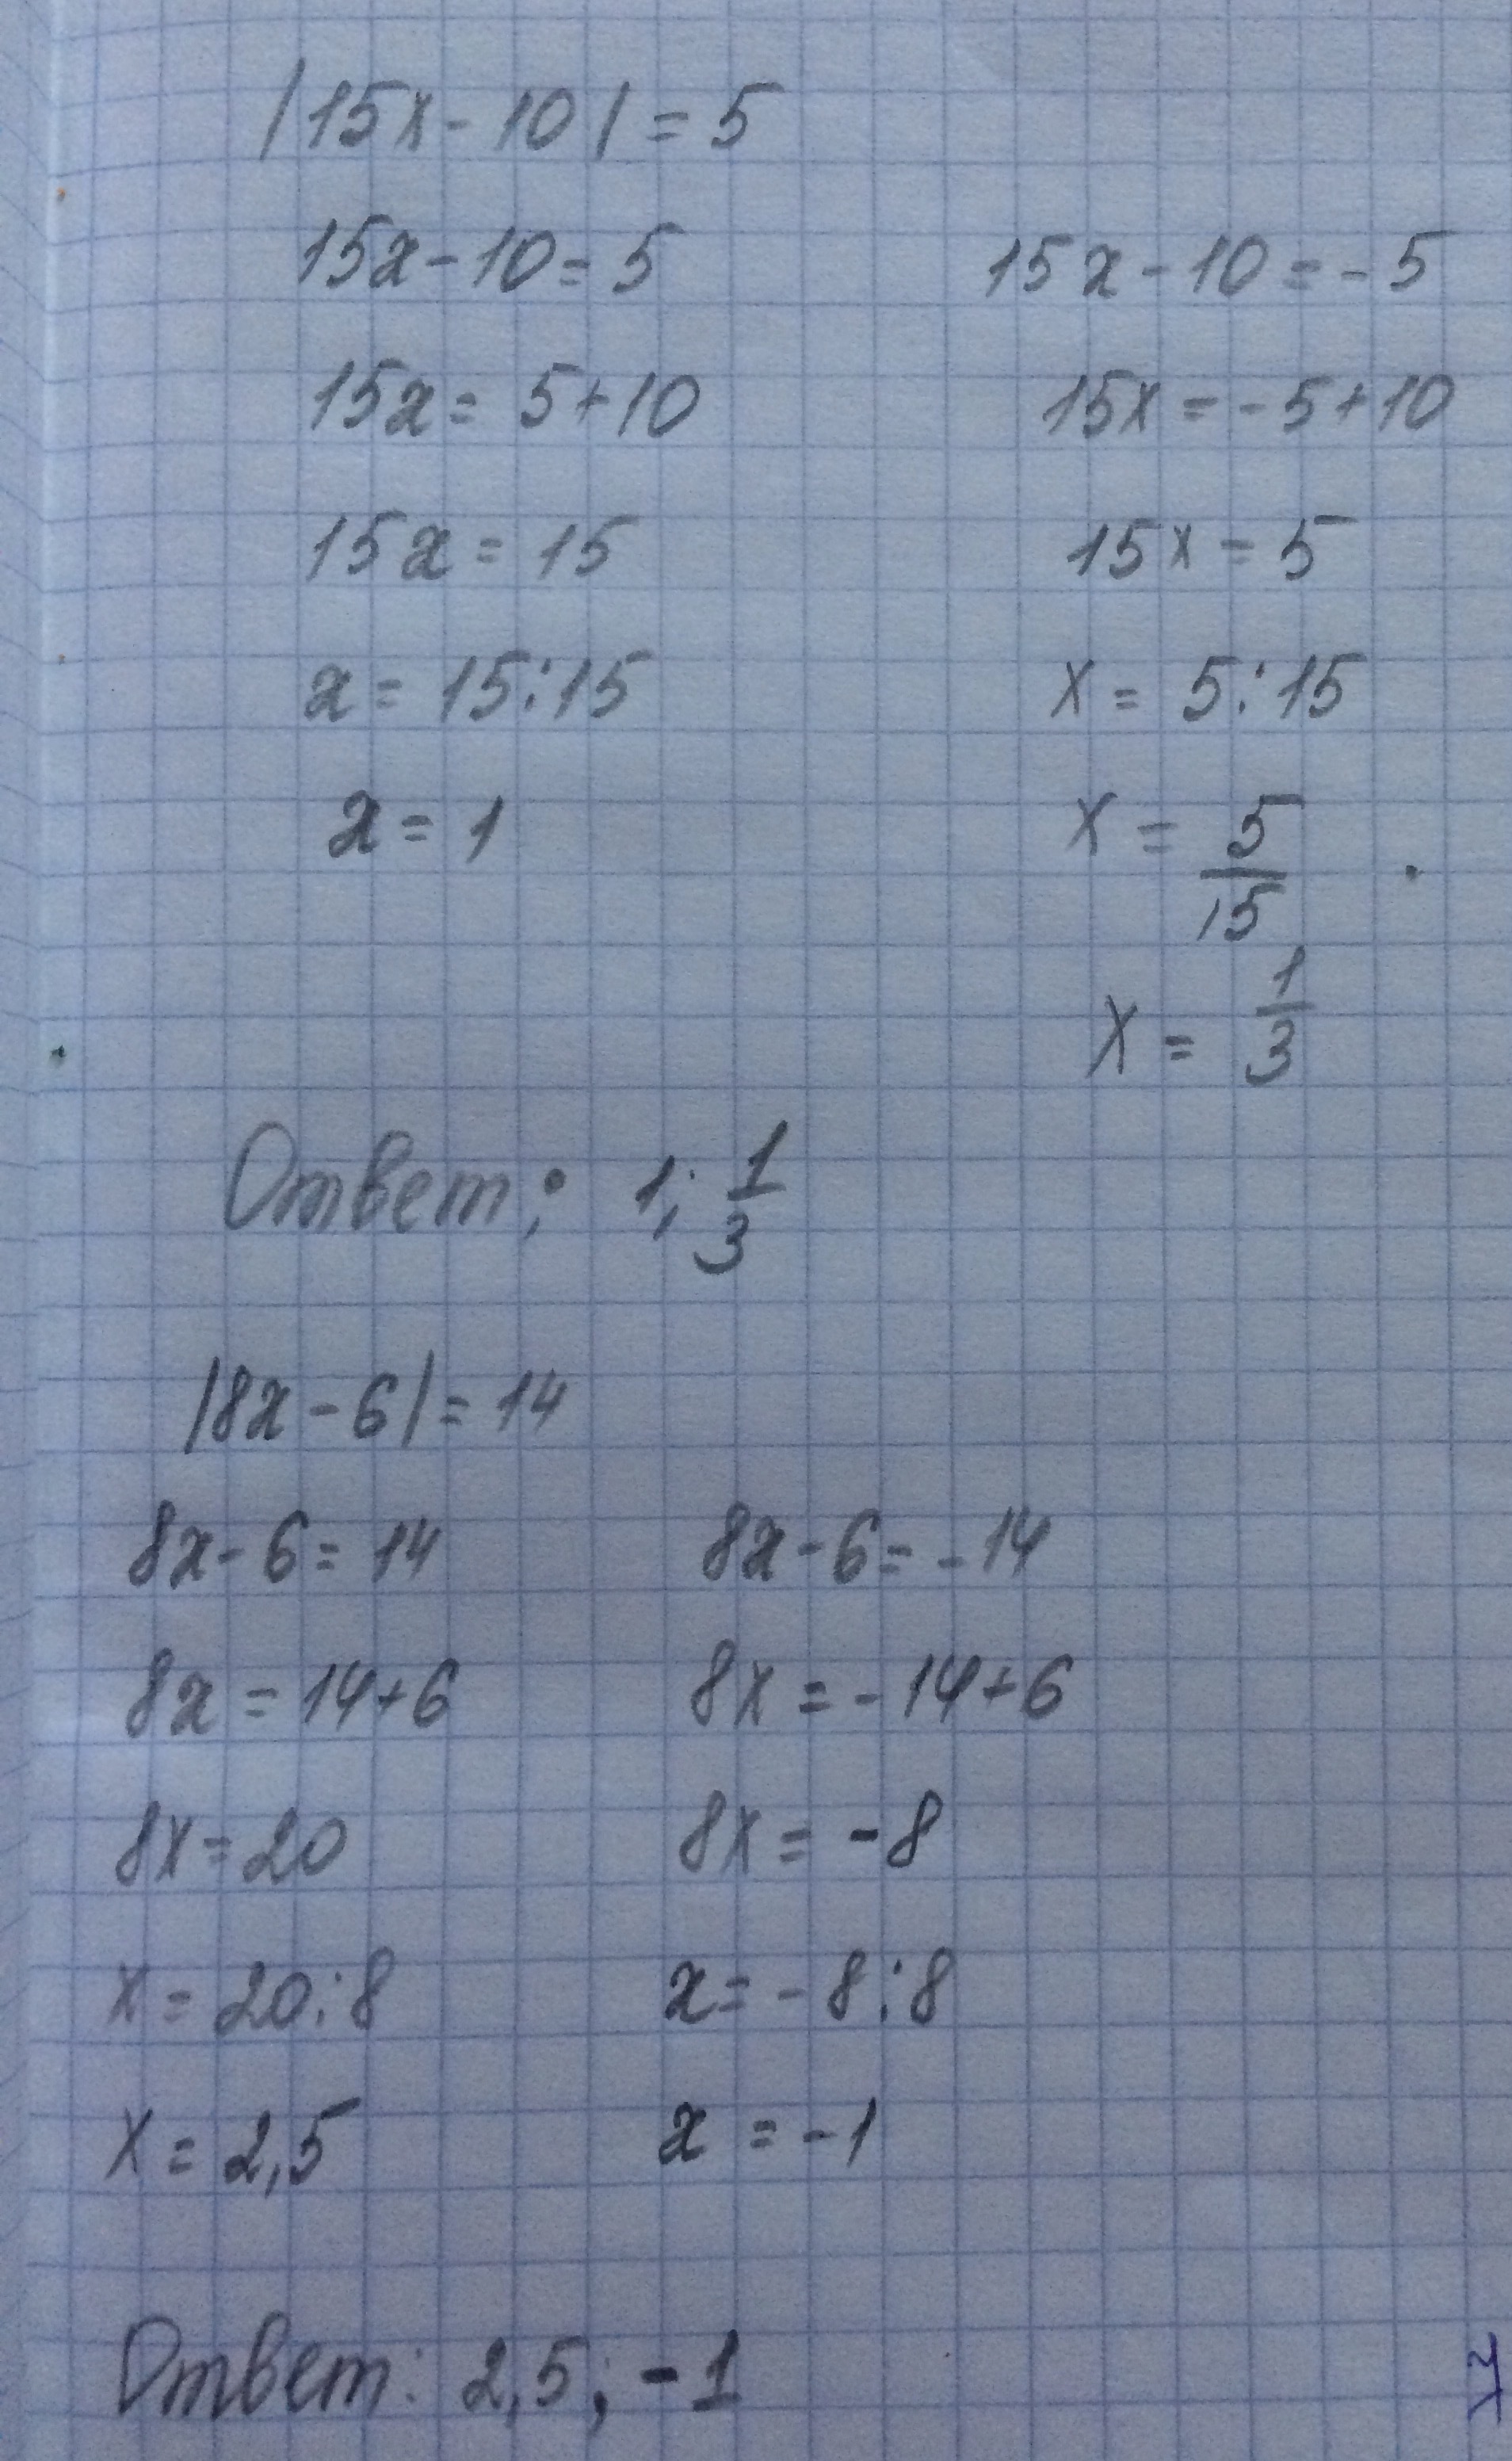 |15x - 10| = 5
15x - 10 = 5
15x = 5 + 10
15x = 15
x = 15 : 15
x = 1
15x - 10 = - 5
15x = - 5 + 10
15x = 5
x = 5 : 15
x = 5/15
x = 1/3
Ответ: 1; 1/3
|8x - 6| = 14
8x - 6 = 14
8x = 14 + 6
8x = 20
x = 20 : 8
x = 2,5
8x - 6 = - 14
8x = - 14 + 6
8x = - 8
x = - 8 : 8
x = - 1
Ответ: 2,5; - 1